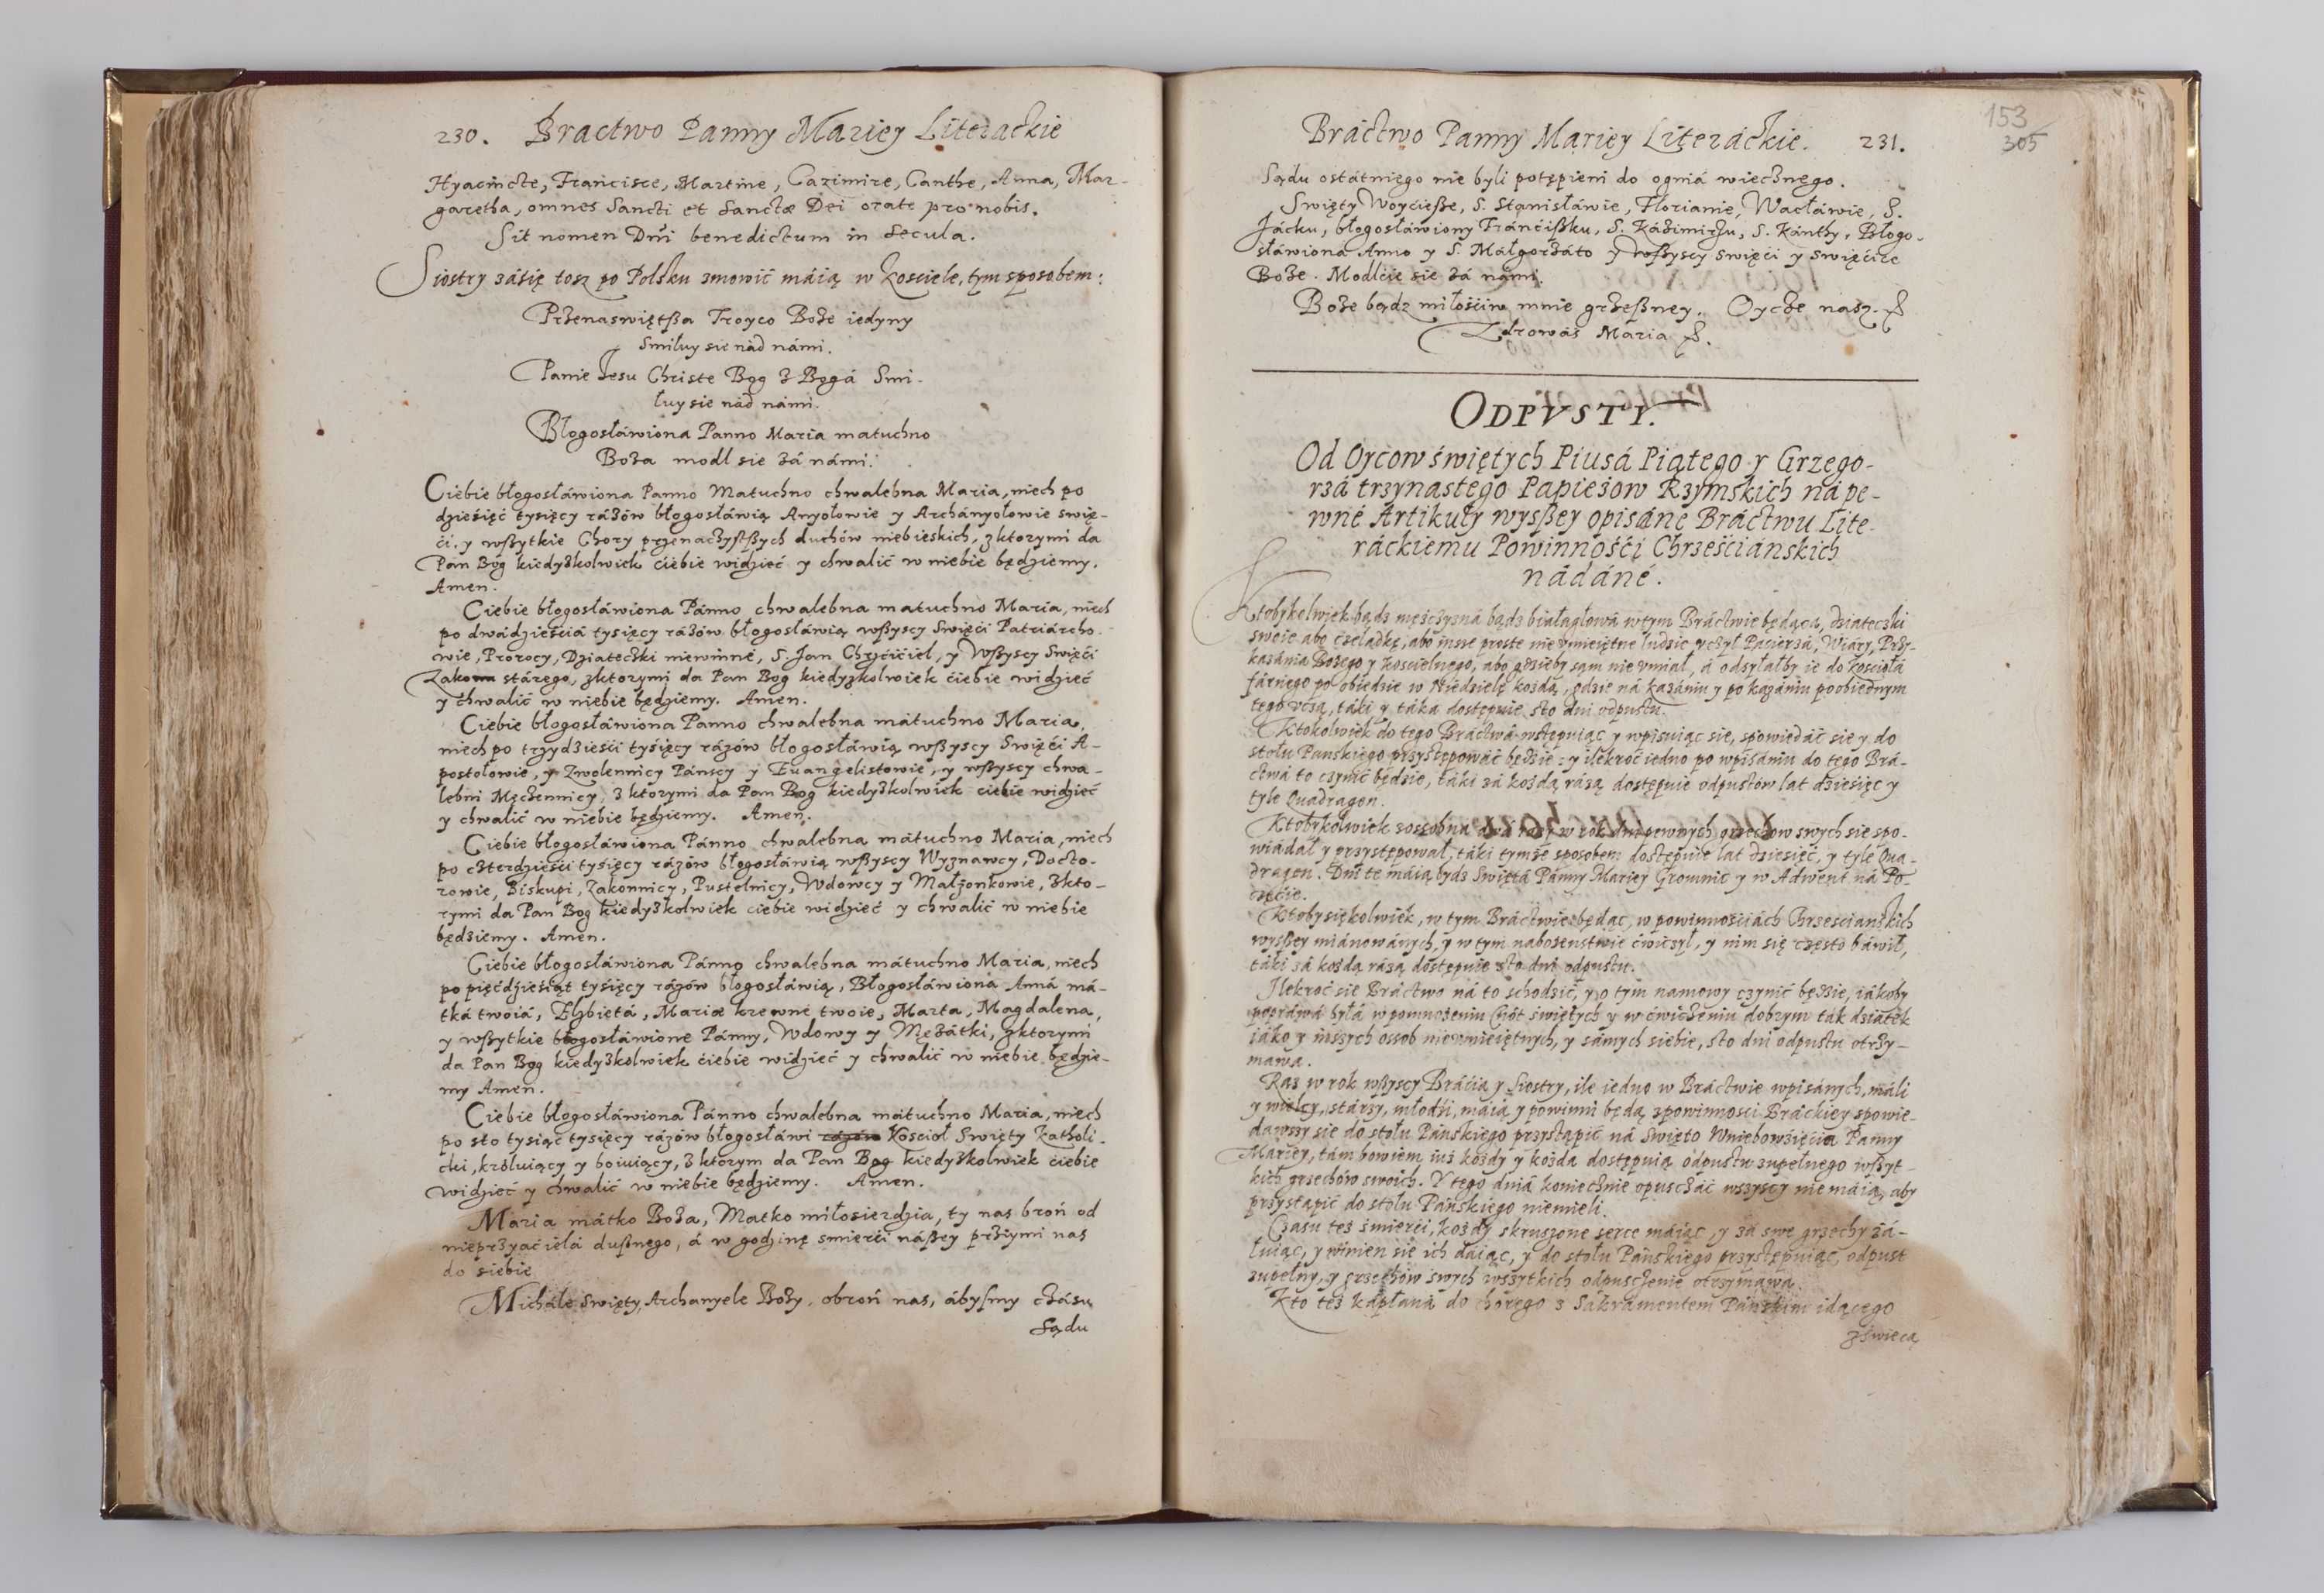 230. Bractwo Panny Mariey Literackie
Hyacincte, Francisce, Martine, Cazimire, Canthe, Anna, Mar-
garetha, omnes Sancti et Sanctæ Dei orate pro nobis.
Sit nomen Dñi benedictum in secula.
Siostry zásię tosz po Polsku zmowić máią w kosciele, tym sposobem:
Przenaswiętßa Troyco Boże iedyny
Smiluy sie nád námi.
Panie Jesu Christe Bog z Bogá Smi-
łuy sie nád námi.
Błogosłáwiona Panno Maria matuchno
Boża modl sie zá námi.
Ciebie błogosłáwiona Panno Matuchno chwalebna Maria, niech po
dziesięć tysięcy rázów błogosłáwią Anyołowie y Archányołowie swię-
ći. y wßytkie Chory przenaczystßych duchów niebieskich, z ktorymi da
Pan Bóg kiedyżkolwiek ciebie widzieć y chwalić w niebie będziemy.
Amen.
Ciebie błogosłáwiona Pánno chwalebna matuchno Maria, niech
po dwádzieśćiá tysięcy rázów błogosłáwią wßyscy Swięći Patriárcho-
wie, Prorocy, Dziateczki niewinné, S. Jan Chrzćićiel, y wßyscy Swięći
Zakona stárego, z ktorymi da Pan Bog kiedyzkolwiek ćiebie widzieć
y chwalić w niebie będziemy. Amen.
Ciebie błogosłáwiona Panno chwalebna mátuchno Maria,
niech po trzydzieśći tyśięcy rázów błogosłáwią wßyscy Swięći A-
postołowie, y Zwolennicy Pánscy y Euangelistowie, y wßyscy chwa-
lebni Męczennicy, z ktorymi da Pan Bog kiedyżkolwiek ciebie widzieć
y chwalić w niebie będziemy. Amen.
Ciebie błogosłáwiona Pánno chwalebna mátuchno Maria, niech
po czterdzieśći tysięcy rázów błogosłáwią wßyscy Wyznawcy, Docto-
rowie, Biskupi, Zakonnicy, Pustelnicy, Wdowcy y Małżonkowie, z kto-
rymi da Pan Bog kiedyżkolwiek ciebie widzieć y chwalić w niebie
będziemy. Amen.
Ciebie błogosłáwiona Pánno chwalebna mátuchno Maria, niech
po pięćdzieśiąt tysięcy rázów błogosłáwią, Błogosłáwiona Anná má-
tká twoiá, Elżbiętá, Mariæ krewné twoie, Marta, Magdalena,
y wßytkie błogosłáwione Pánny, Wdowy y Mężátki, z ktorymi
da Pan Bog kiedyżkolwiek ćiebie widzieć y chwalić w niebie będzie-
my Amen.
Ciebie błogosłáwiona Pánno chwalebna mátuchno Maria, niech
po sto tysiąc tysięcy rázów błogosłáwi rázów Kościoł Swięty Katholi-
cki, króluiący y boiuiący, z ktorym da Pan Bog kiedyżkolwiek ćiebie
widzieć y chwalić w niebie będziemy. Amen.
Maria mátko Boża, Matko miłosierdzia, ty nas broń od
nieprzyaćielá dußnego, á w godzinę smierći náßey przyimi nas
do siebie.
Michále Swięty, Archanyele Boży, obroń nas, ábysmy czásu
Sądu
Bráctwo Panny Mariey Literáckie. 231.
153
305
Sądu ostátniego nie byli potępieni do ogniá wiecznego.
Swięty Woyćieße, S. Stánisłáwie, Florianie, Wacłáwie, S.
Jácku, błogosłáwiony Fránćißku, S. Kázimirzu, S. Kánthy, Błogo-
słáwiona Anno y S. Małgorzáto y wßyscy Swięći y Swięćice
Boże. Modlćie sie zá námi.
Boże bądz miłośćiw mnie grzeßney. Oycze nasz.
Zdrowás Mária
ODPVSTY.
Od Oycow świętych Piusá Piątego y Grzego-
rzá trzynastego Papieżow Rzymskich ná pe-
wné Artikuły wysßey opisáné Bráctwu Lite-
ráckiemu Powinnośći Chrześćiánskich
nádáné.
Ktobykolwiek bądz męsczyzná bądz białagłowá w tym Bráctwie będąca, Dziateczki
swoie ábo czeladkę, ábo insse proste nievmieiętne ludzie vczył Paćierzá, Wiáry, Przy-
kazánia Bożego y kościelnego, ábo gdzieby sąm nie vmiał, á odsyłałby ie do kościołá
fárnego po obiedzie w Niedzielę kożdą, gdzie ná kazániu y po kazániu poobiednym
tego vczą, táki y táka dostępuie sto dni odpustu.
Ktokolwiek do tego Bráctwá wstępuiąc y wpisuiąc sie, spowiedáć sie y do
stołu Panskiego przystępowáć będzie: y ilekroć iedno po wpisániu do tego Brá-
ctwá to czynić będzie, táki zá kożdą rázą dostępuie odpustow lat dziesięc y
tyle Quadragen.
Ktobykolwiek zossobna dwá rázy w rok dni pewnych grzechow swych sie spo-
wiádał y przystępował, táki tymże sposobem dostępuie lat dziesięć, y tyle Qua-
dragen. Dni te máią bydz Swiętá Panny Mariey Gromnic y w Adwent ná Po-
częćie.
Ktobysiękolwiek, w tym Bráctwie będąc, w powinnośćiách Chrześciánskich
wysßey miánowánych, y w tym nabożenstwie ćwiczył, y nim się często báwił,
táki zá kożdą rázą dostępuie sto dni odpustu.
Ilekroć sie Bráctwo ná to schodzić, y o tym namowy czynić będzie, iákoby
popráwá byłá w pomnożeniu Cnót świętych y w ćwiczeniu dobrym ták dziatek
iáko y inszych ossob nievmieiętnych, y sámych siebie, sto dni odpustu otrzy-
mawa.
Raz w rok wßyscy Bráćia y Siostry, ile iedno w Bráctwie wpisánych, máli
y wielcy, stárzy, młodźi, máią y powinni będą z powinnosci Bráckiey spowie-
dawszy sie do stołu Pánskiego przystąpić ná Swięto Wniebowzięćia Panny
Mariey, tám bowiem iuż kożdy y kożda dostępuią odpustu zupełnego wßyt-
kich grzechów swoich. Y tego dniá koniecznie opusczáć wszyscy nie máią, aby
przystąpić do stołu Pánskiego niemieli.
Czasu też śmierći, kożdy skruszone serce máiąc, y zá swe grzechy żá-
łuiąc, y winien sie ich dáiąc, y do stołu Pánskiego przystępuiąc, odpust
zupełny, y grzechów swych wszytkich odpusczenie otrzymawa.
Kto też kápłaná do chorego z Sákramentem Pánskim idącego
z świecą